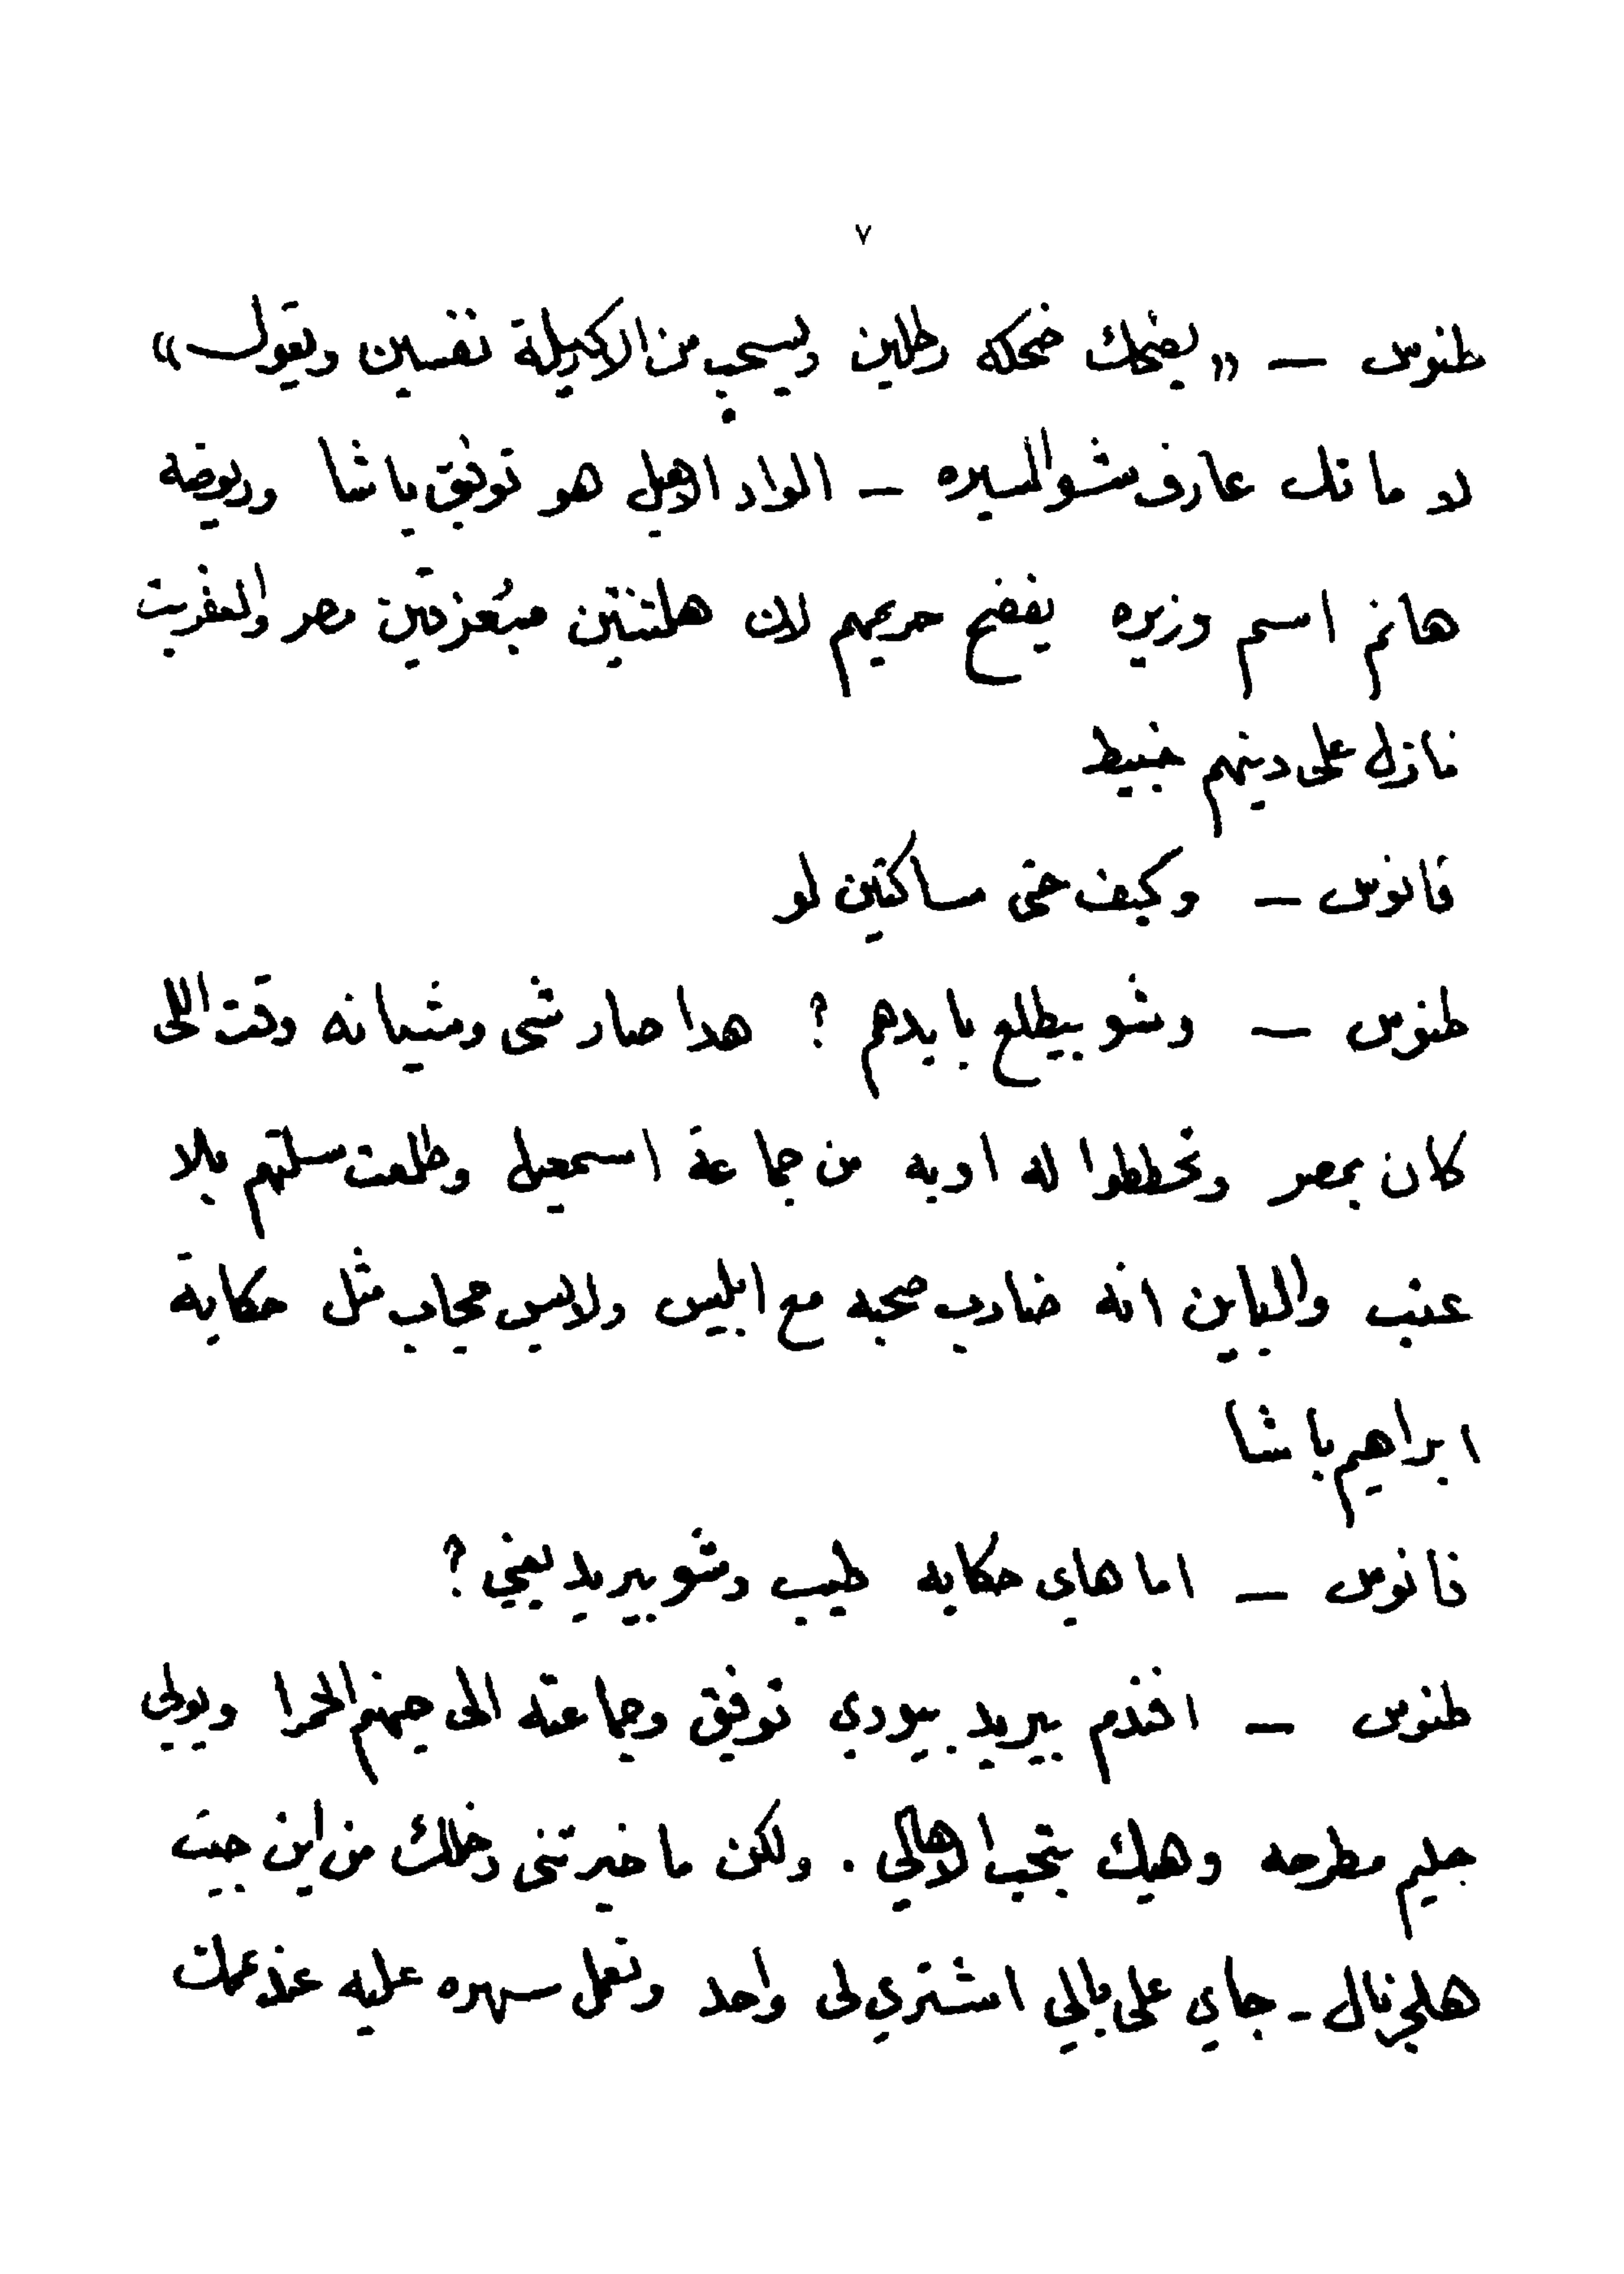 ٧
طنوس — «يضحك ضحكه رطلين ويسحب من الاركيلة نفسين ويقول»
لو مانك عارف شو السيره — الواد الاهبل هو توفيق باشا وربوضه
هانم اسم وزيره يفضح حريمهم لان هلثنتين مبُعزقين مصر والعفريت
نازل على دينهم خبيط
فانوس — وكيف حتى ساكتين لو
طنوس — وشو بيطلع بايدهم ؟ هدا صار شى ومشيانه وقت اللى
كان بمصر وتخططوا له اوبه من جماعة اسمعيل وطلعت سلتهم بلا
عنب والباين انه ضارب صحبه مع ابليس ولابس حجاب مثل حكاية
ابراهيم باشا
فانوس — اما هاي حكايه طيب وشو بيريد يعني ؟
طنوس — افندم بيريد بيودي توفيق وجماعته الى جهنم الحمرا ويولى
حليم مطرحه وهيك بتحب الاهالي . ولكن ما خبرتنى دخلك من اين جبت
هلجرنال - جاي على بالي اشتري لى واحد ونعمل سهره عليه عند عمك